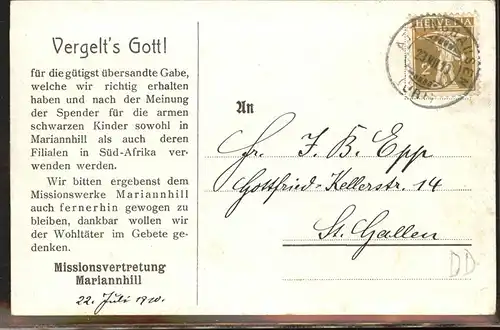 Vergelt's Gott!
für die gütigst übersandte Gabe,
welche wir richtig erhalten
haben und nach der Meinung
der Spender für die armen
schwarzen Kinder sowohl in
Mariannhill als auch deren
Filialen in Süd-Afrika ver-
wenden werden.
Wir bitten ergebenst dem
Missionswerke Mariannhill
auch fernerhin gewogen zu
bleiben, dankbar wollen wir
der Wohltäter im Gebete ge-
denken.
Missionsvertretung
Mariannhill
22. Juli
HELVETIA
2
An
Hr. J. B. Epp
Gottfried-Kellerstr. 14
St. Gallen
DD